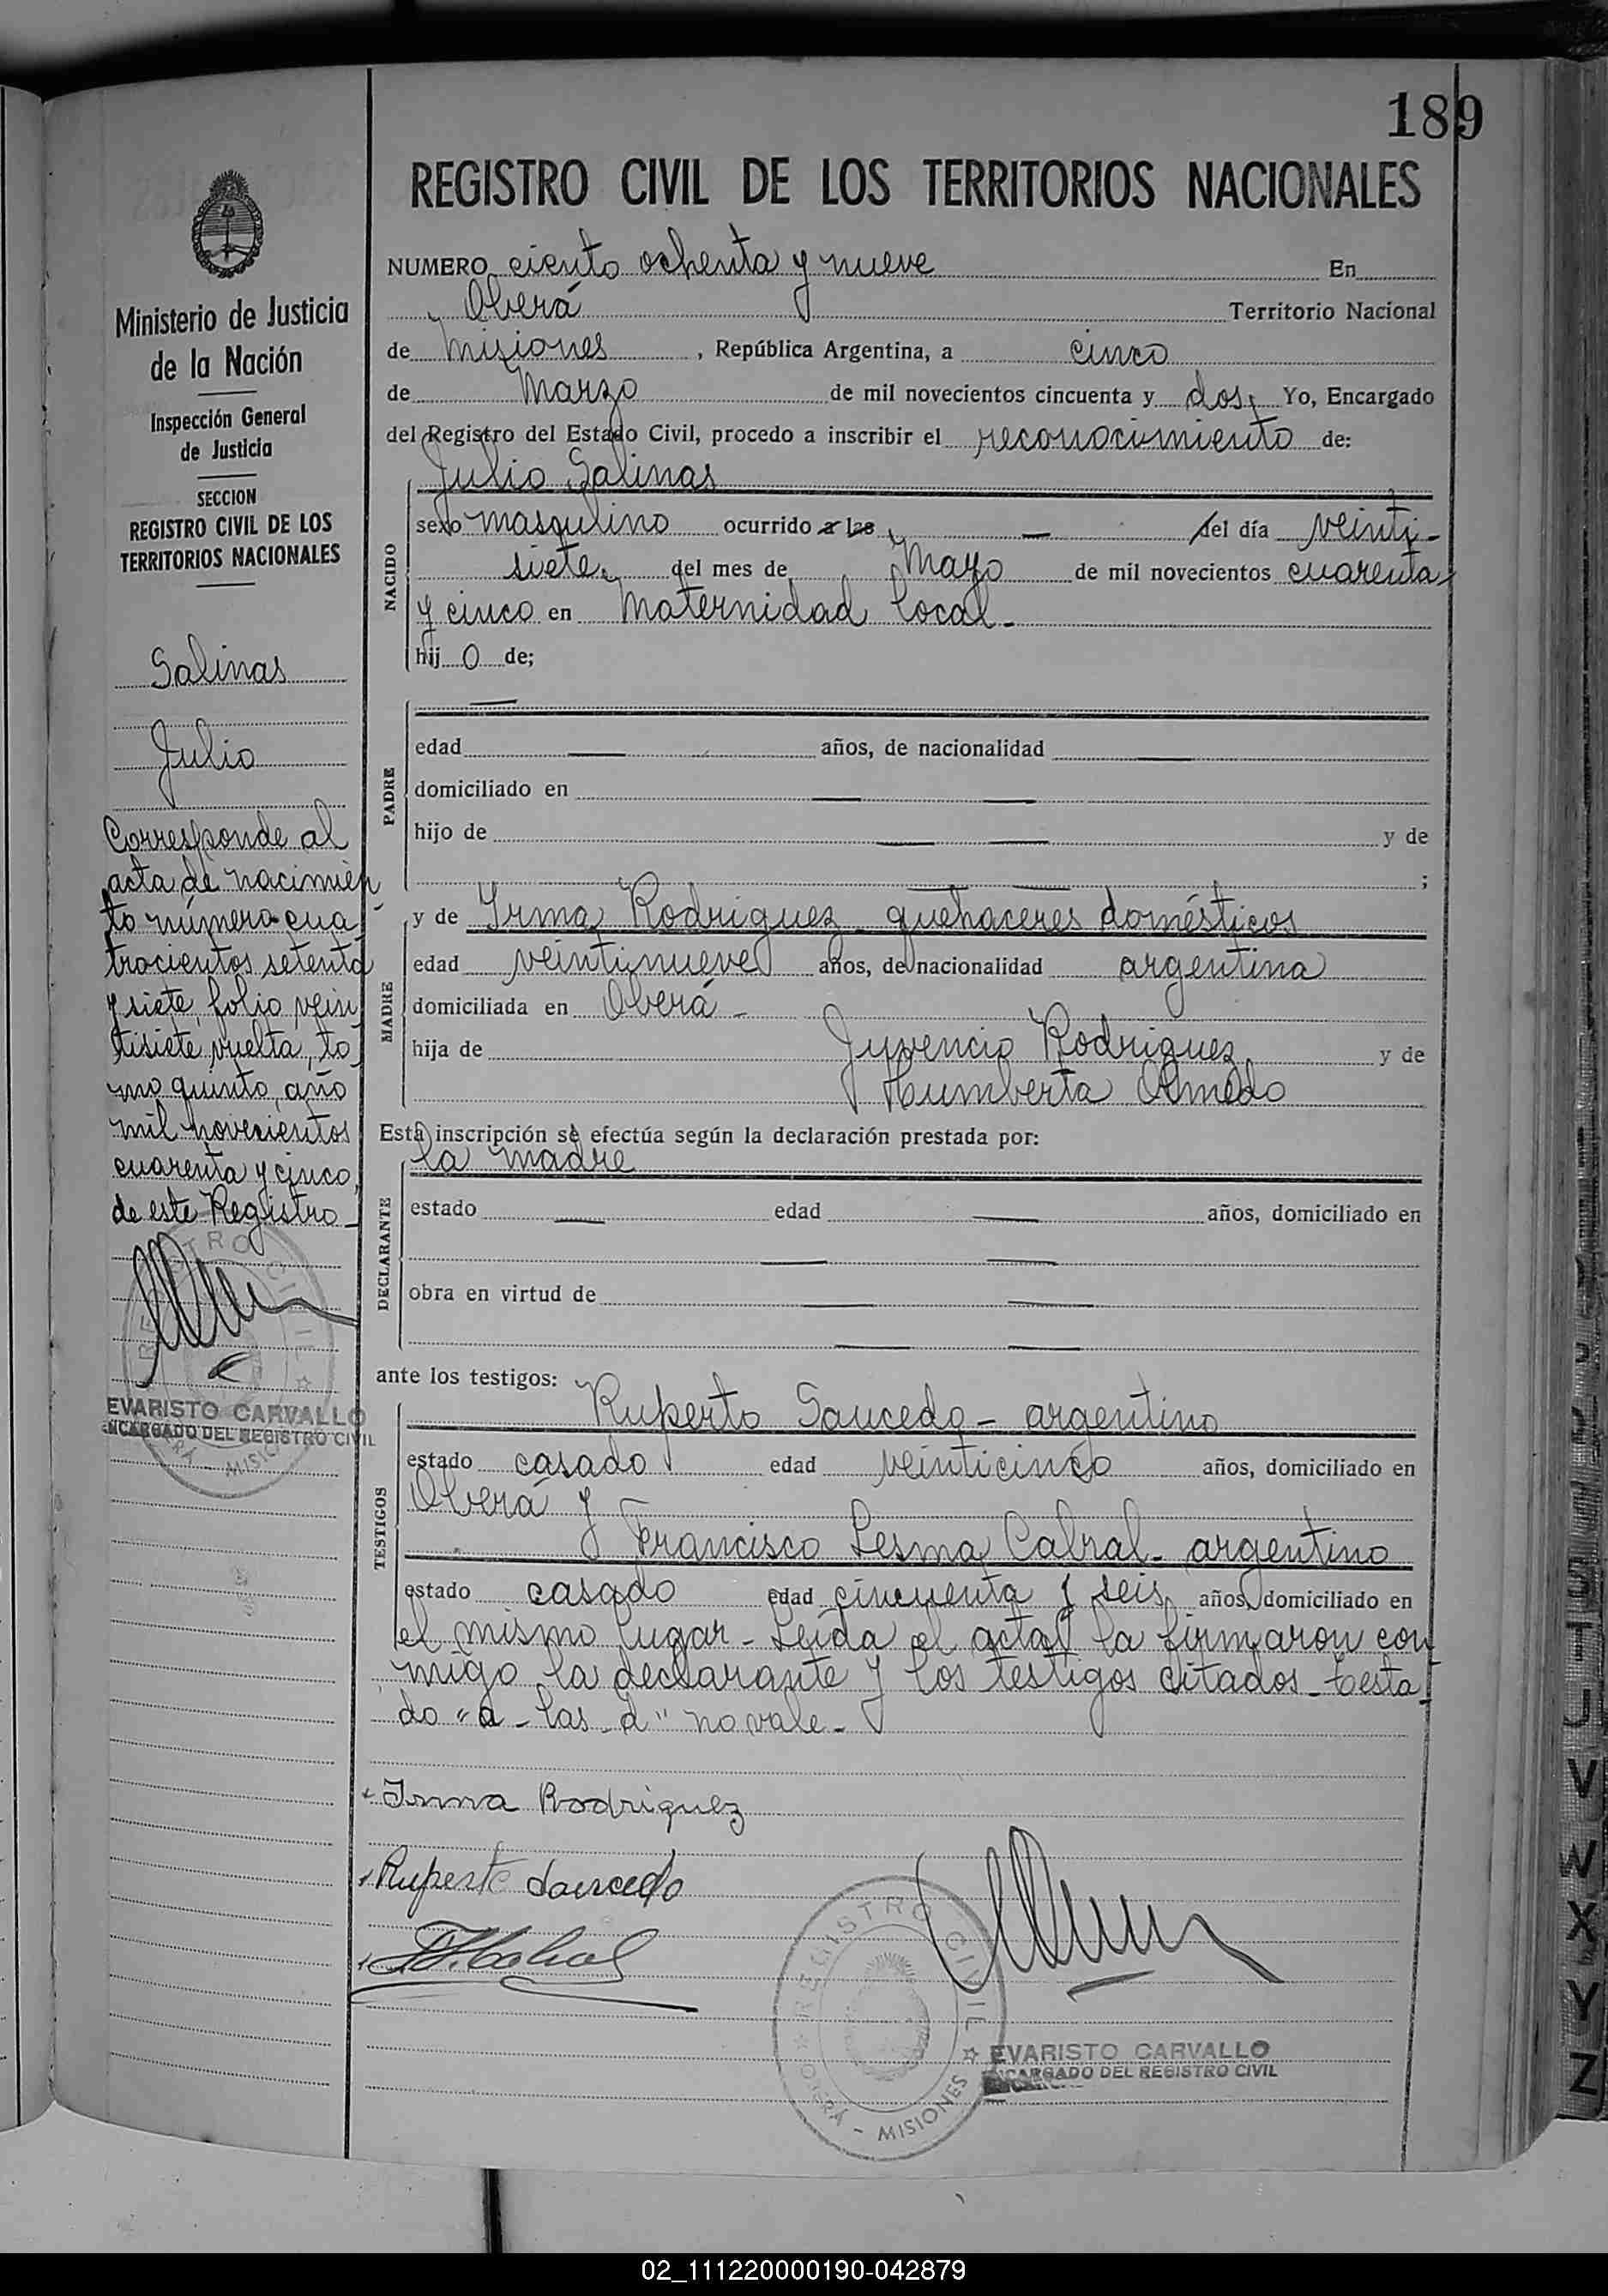 189
REGISTRO CIVIL DE LOS TERRITORIOS NACIONALES
NUMERO ciento ochenta y nueve En
Oberá Territorio Nacional
de Misiones , República Argentina, a cinco
de Marzo de mil novecientos cincuenta y dos, Yo, Encargado
del Registro del Estado Civil, procedo a inscribir el reconocimiento de:
NACIDO
Julio Salinas
sexo masqulino ocurrido a las — del día veinti-
siete, del mes de Mayo de mil novecientos cuarenta
y cinco en Maternidad local -
hij o de;
PADRE
edad — años, de nacionalidad —
domiciliado en — —
hijo de — — y de
— — ;
MADRE
y de Irma Rodriguez - quehaceres domésticos
edad veintinueve años, de nacionalidad argentina
domiciliada en Oberá -
hija de Juvencio Rodriguez y de
Humberta Olmedo
Esta inscripción se efectúa según la declaración prestada por:
DECLARANTE
la madre
estado — edad — años, domiciliado en
— —
obra en virtud de — —
— —
ante los testigos:
TESTIGOS
Ruperto Saucedo - argentino
estado casado edad veinticinco años, domiciliado en
Oberá y
Francisco Lesma Cabral - argentino
estado casado edad cincuenta y seis años, domiciliado en
el mismo lugar - Leída el acta la firmaron con-
migo la declarante y los testigos citados - Testa-
do "a - las - d" no vale -
Irma Rodriguez
Ruperto Saucedo
REGISTRO CIVIL
OBERÁ - MISIONES
EVARISTO CARVALLO
ENCARGADO DEL REGISTRO CIVIL
Ministerio de Justicia
de la Nación
Inspección General
de Justicia
SECCION
REGISTRO CIVIL DE LOS
TERRITORIOS NACIONALES
Salinas
Julio
Corresponde al
acta de nacimien
to número cua
trocientos setenta
y siete, folio vein
tisiete vuelta, to
mo quinto, año
mil novecientos
cuarenta y cinco,
de este Registro -
REGISTRO CIVIL
OBERÁ - MISIONES
EVARISTO CARVALLO
ENCARGADO DEL REGISTRO CIVIL
S
T
U
V
W
X
Y
Z
02_111220000190-042879